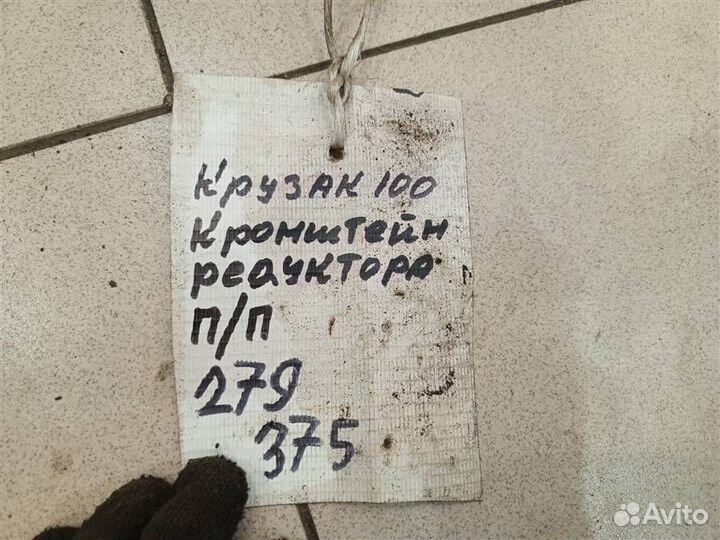 Крузак 100
Кронштейн
редуктора
п/п
279
375
Avito